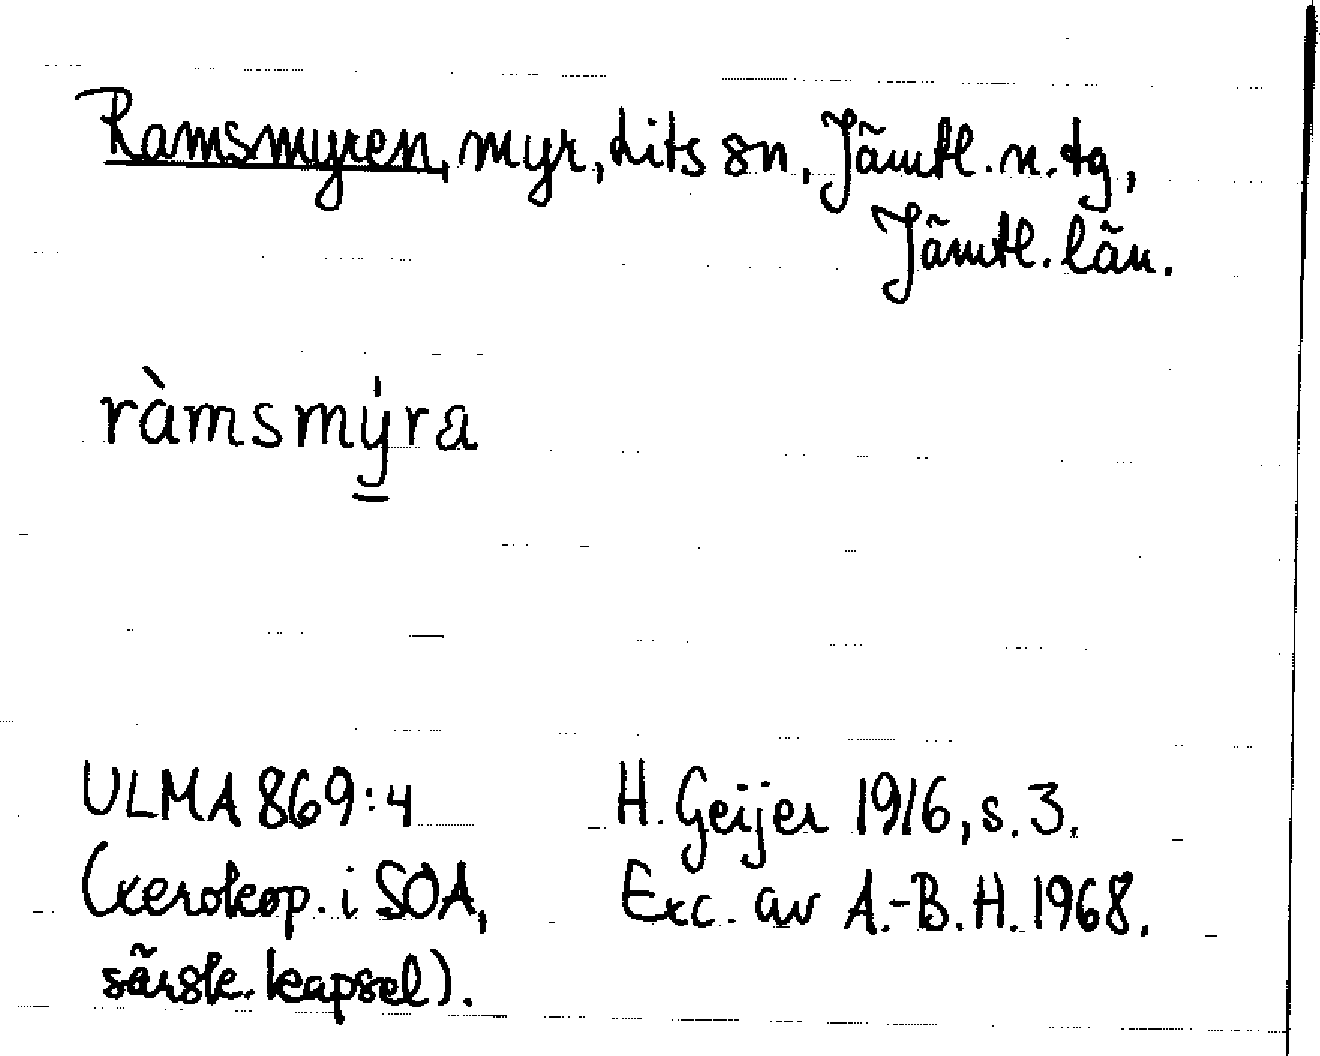 Ramsmyren, myr, Lits sn, Jämtl. n. tg,
Jämtl. län.
ràmsmy̲̍ra
ULMA 869:4 H. Geijer 1916, s. 3.
(xerokop. i SOA, Exc. av A.-B. H. 1968.
särsk. kapsel).